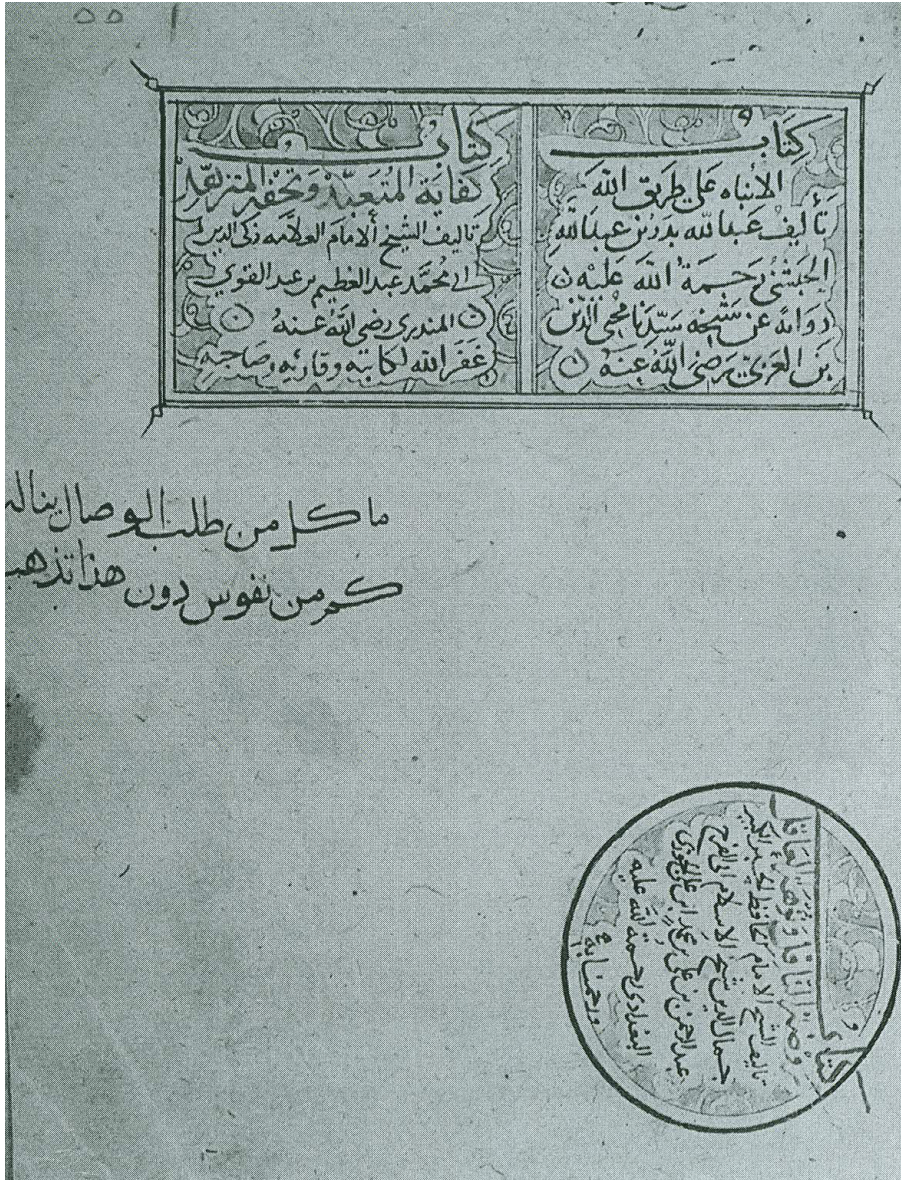 كتاب
الانباه على طريق الله
تأليف عبد الله بدر بن عبد الله
الحبشي رحمة الله عليه
رواية عن شيخه سيدنا محيي الدين
بن العربي رضي الله عنه
كتاب
كفاية المتعبد وتحفة المتزهد
تاليف الشيخ الامام العلامه زكي الدين
ابي محمد عبد العظيم بن عبد القوي
المندري رضي الله عنه
غفر الله لكاتبه وقارئه وصاحبه
ما كل من طلب الوصال يناله
كم من نفوس دون هذا تذهب
كتاب
تاليف الشيخ الامام الحافظ الكبير
جمال الدين شيخ الاسلام ابي الفرج
عبد الرحمن بن علي بن محمد ابن علي الجوزي
البغدادي رحمة الله عليه
ورحمنا به